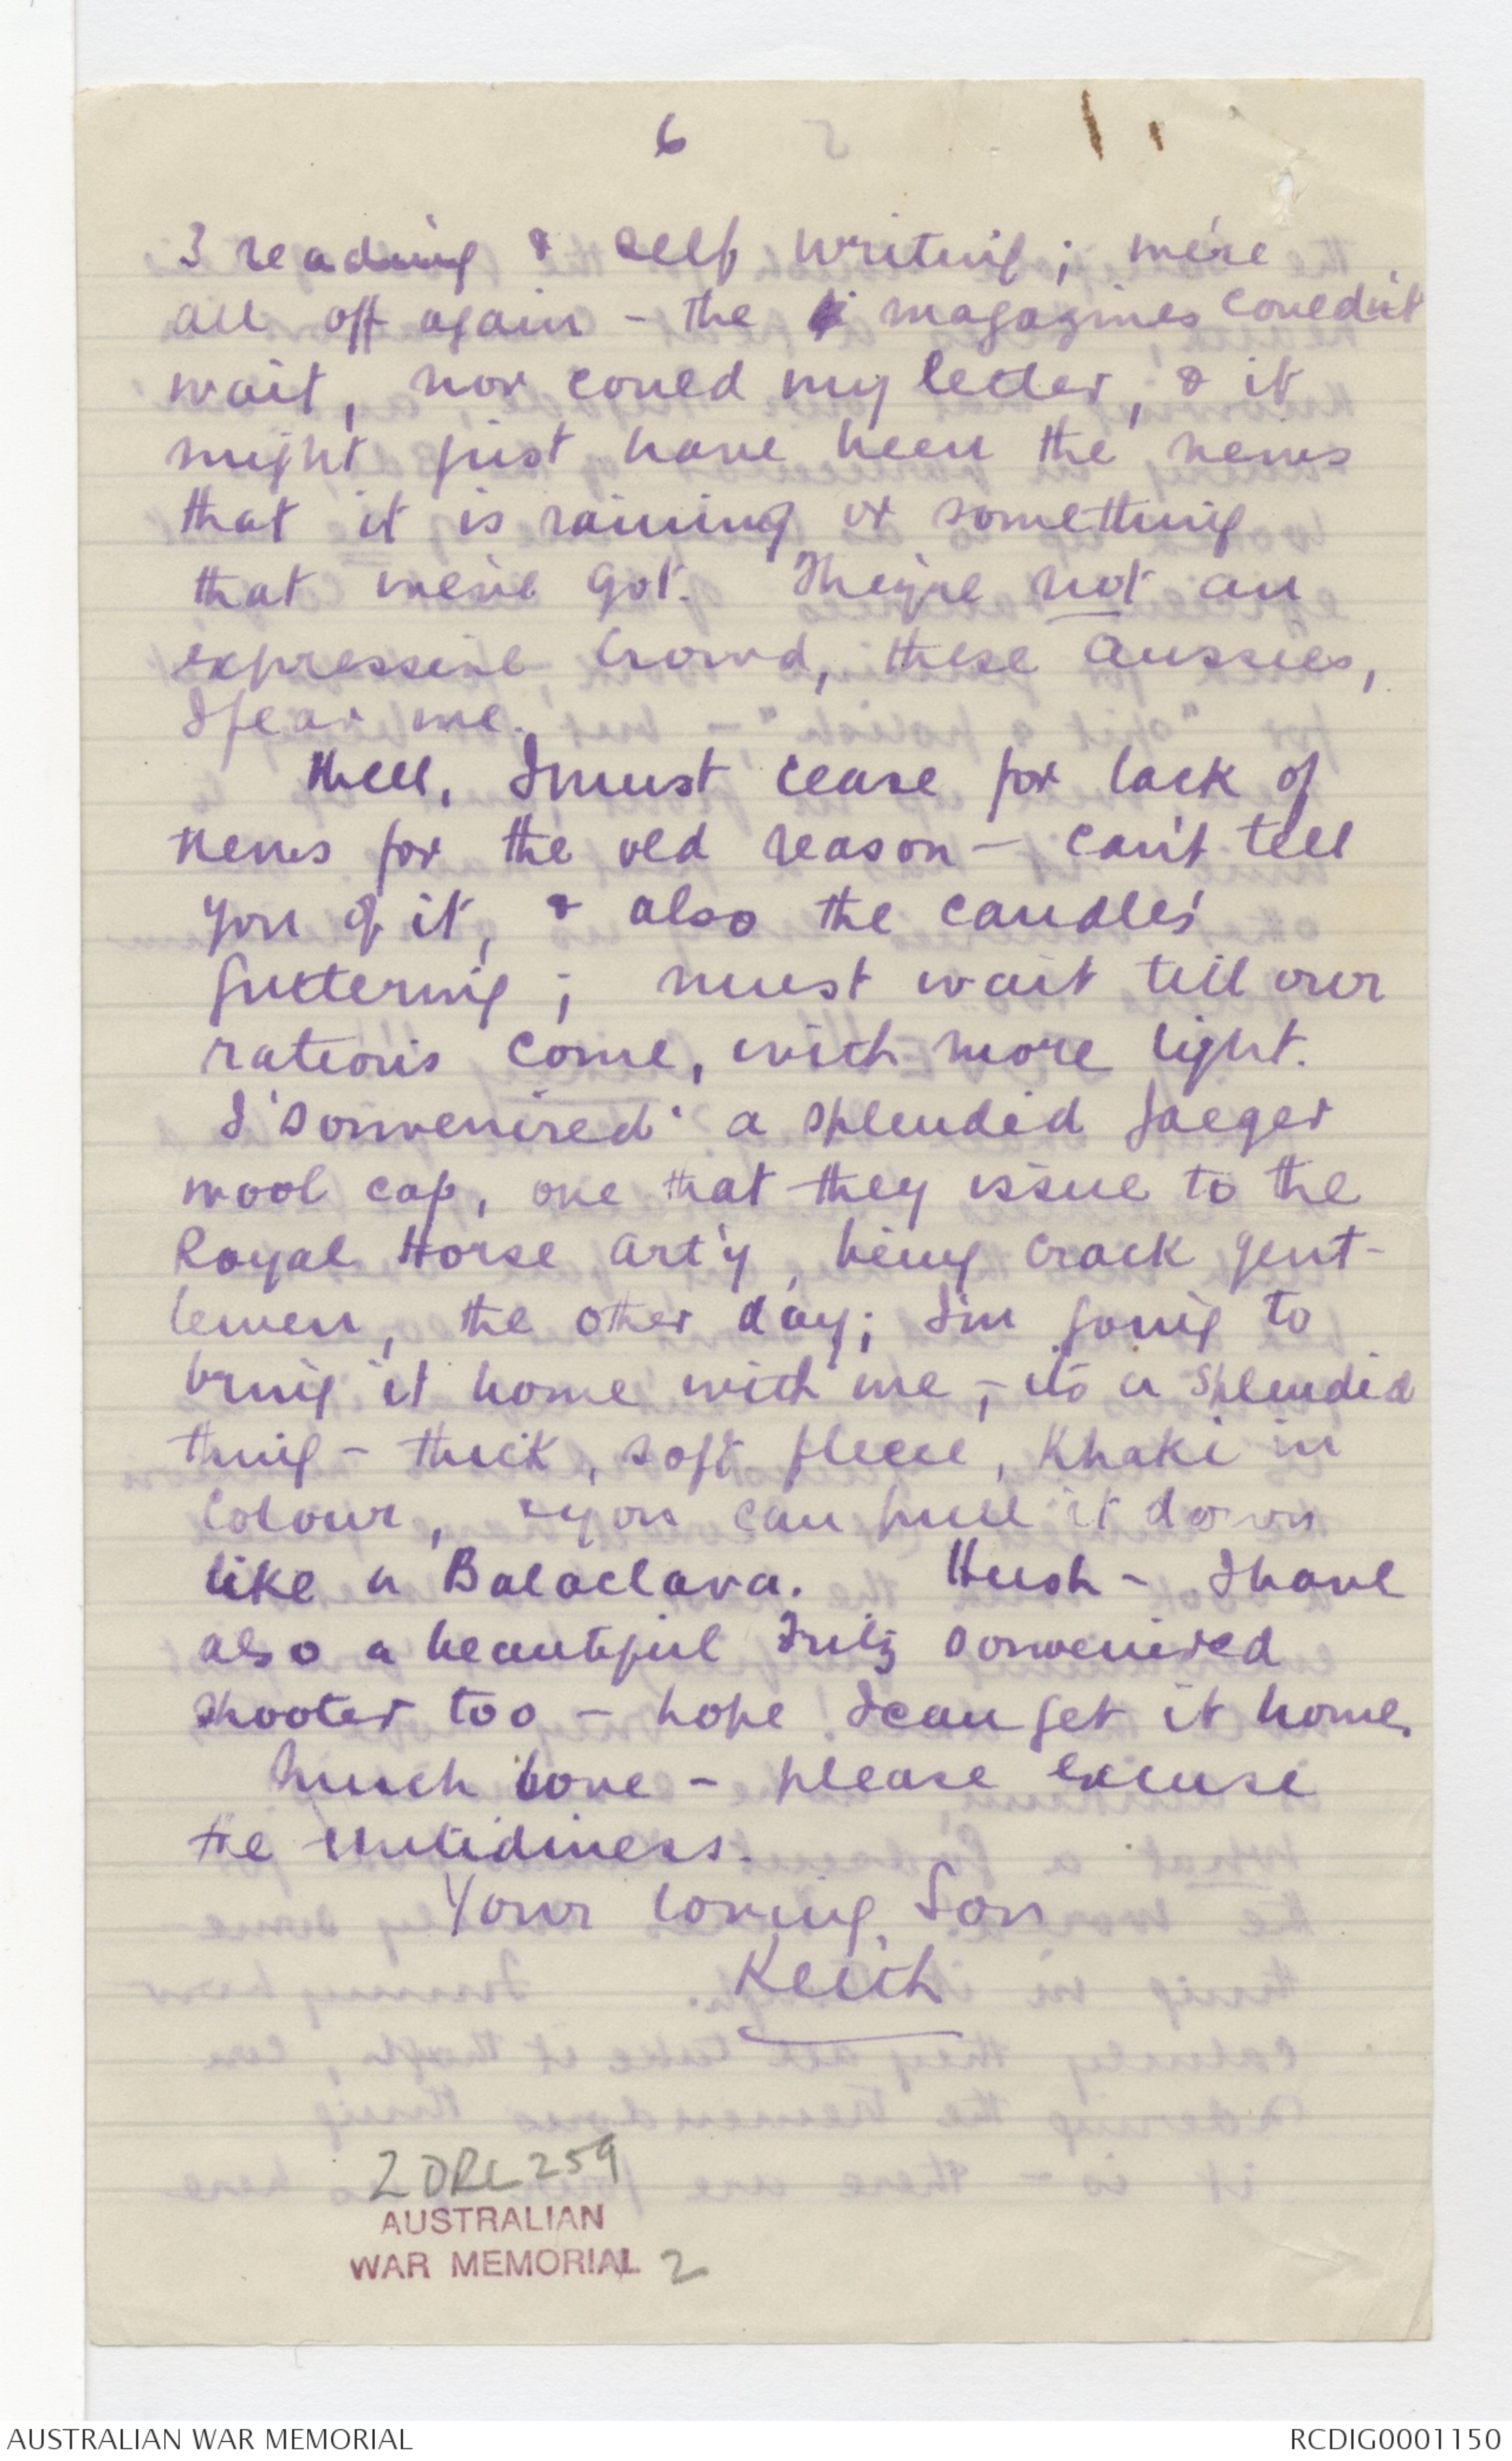 6
3 reading & self writing; we're
all off again - the magazines couldn't
wait, nor could my letter, & it
might just have been the news
that it is raining or something
that we've got. They're not an
expressive crowd, these Aussies,
I fear me.
Well, I must cease for lack of
news for the old reason - can't tell
you of it, & also the candle's
guttering; must wait till our
rations come, with more light.
I 'souvenired' a splendid Jaeger
wool cap, one that they issue to the
Royal Horse Art'y, being crack gent-
lemen, the other day; I'm going to
bring it home with me, - it's a splendid
thing - thick, soft fleece, Khaki in
colour, & you can pull it down
like a Balaclava. Hush - I have
also a beautiful Fritz souvenired
shooter too - hope I can get it home.
Much love - please excuse
the untidiness.
Your loving Son
Keith
2DRL259
AUSTRALIAN
WAR MEMORIAL 2
AUSTRALIAN WAR MEMORIAL
RCDIG0001150